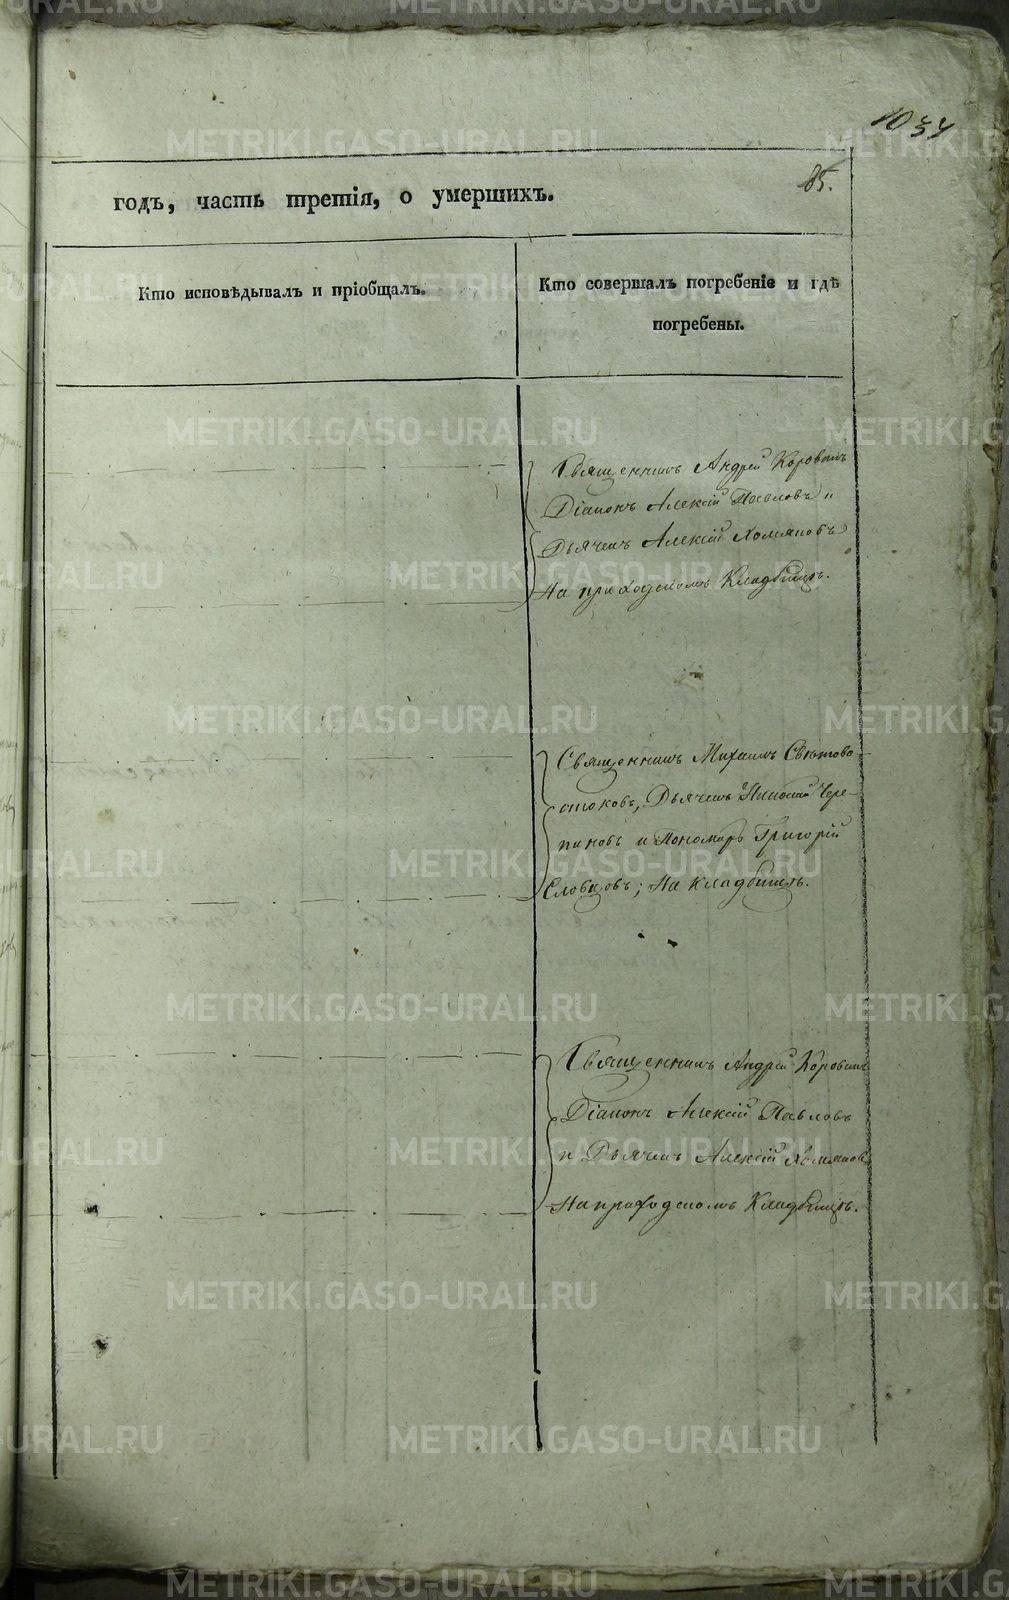 1034
85.
годъ, часть третія, о умершихъ.
Кто исповѣдывалъ и пріобщалъ.
Кто совершалъ погребеніе и гдѣ
погребены.
Священникъ Андрей Коровинъ
Діаконъ Алексій Павловъ и
Дьячекъ Алексій Хомяковъ
На приходскомъ Кладбищѣ.
Священникъ Михаилъ Свѣтово-
стоковъ, Дьячекъ Николай Чере-
пановъ и Пономарь Григорій
Словцовъ; На кладбищѣ.
Священникъ Андрей Коровинъ
Діаконъ Алексій Павловъ
и Дьячекъ Алексій Хомяковъ
На приходскомъ Кладбищѣ.
METRIKI.GASO-URAL.RU